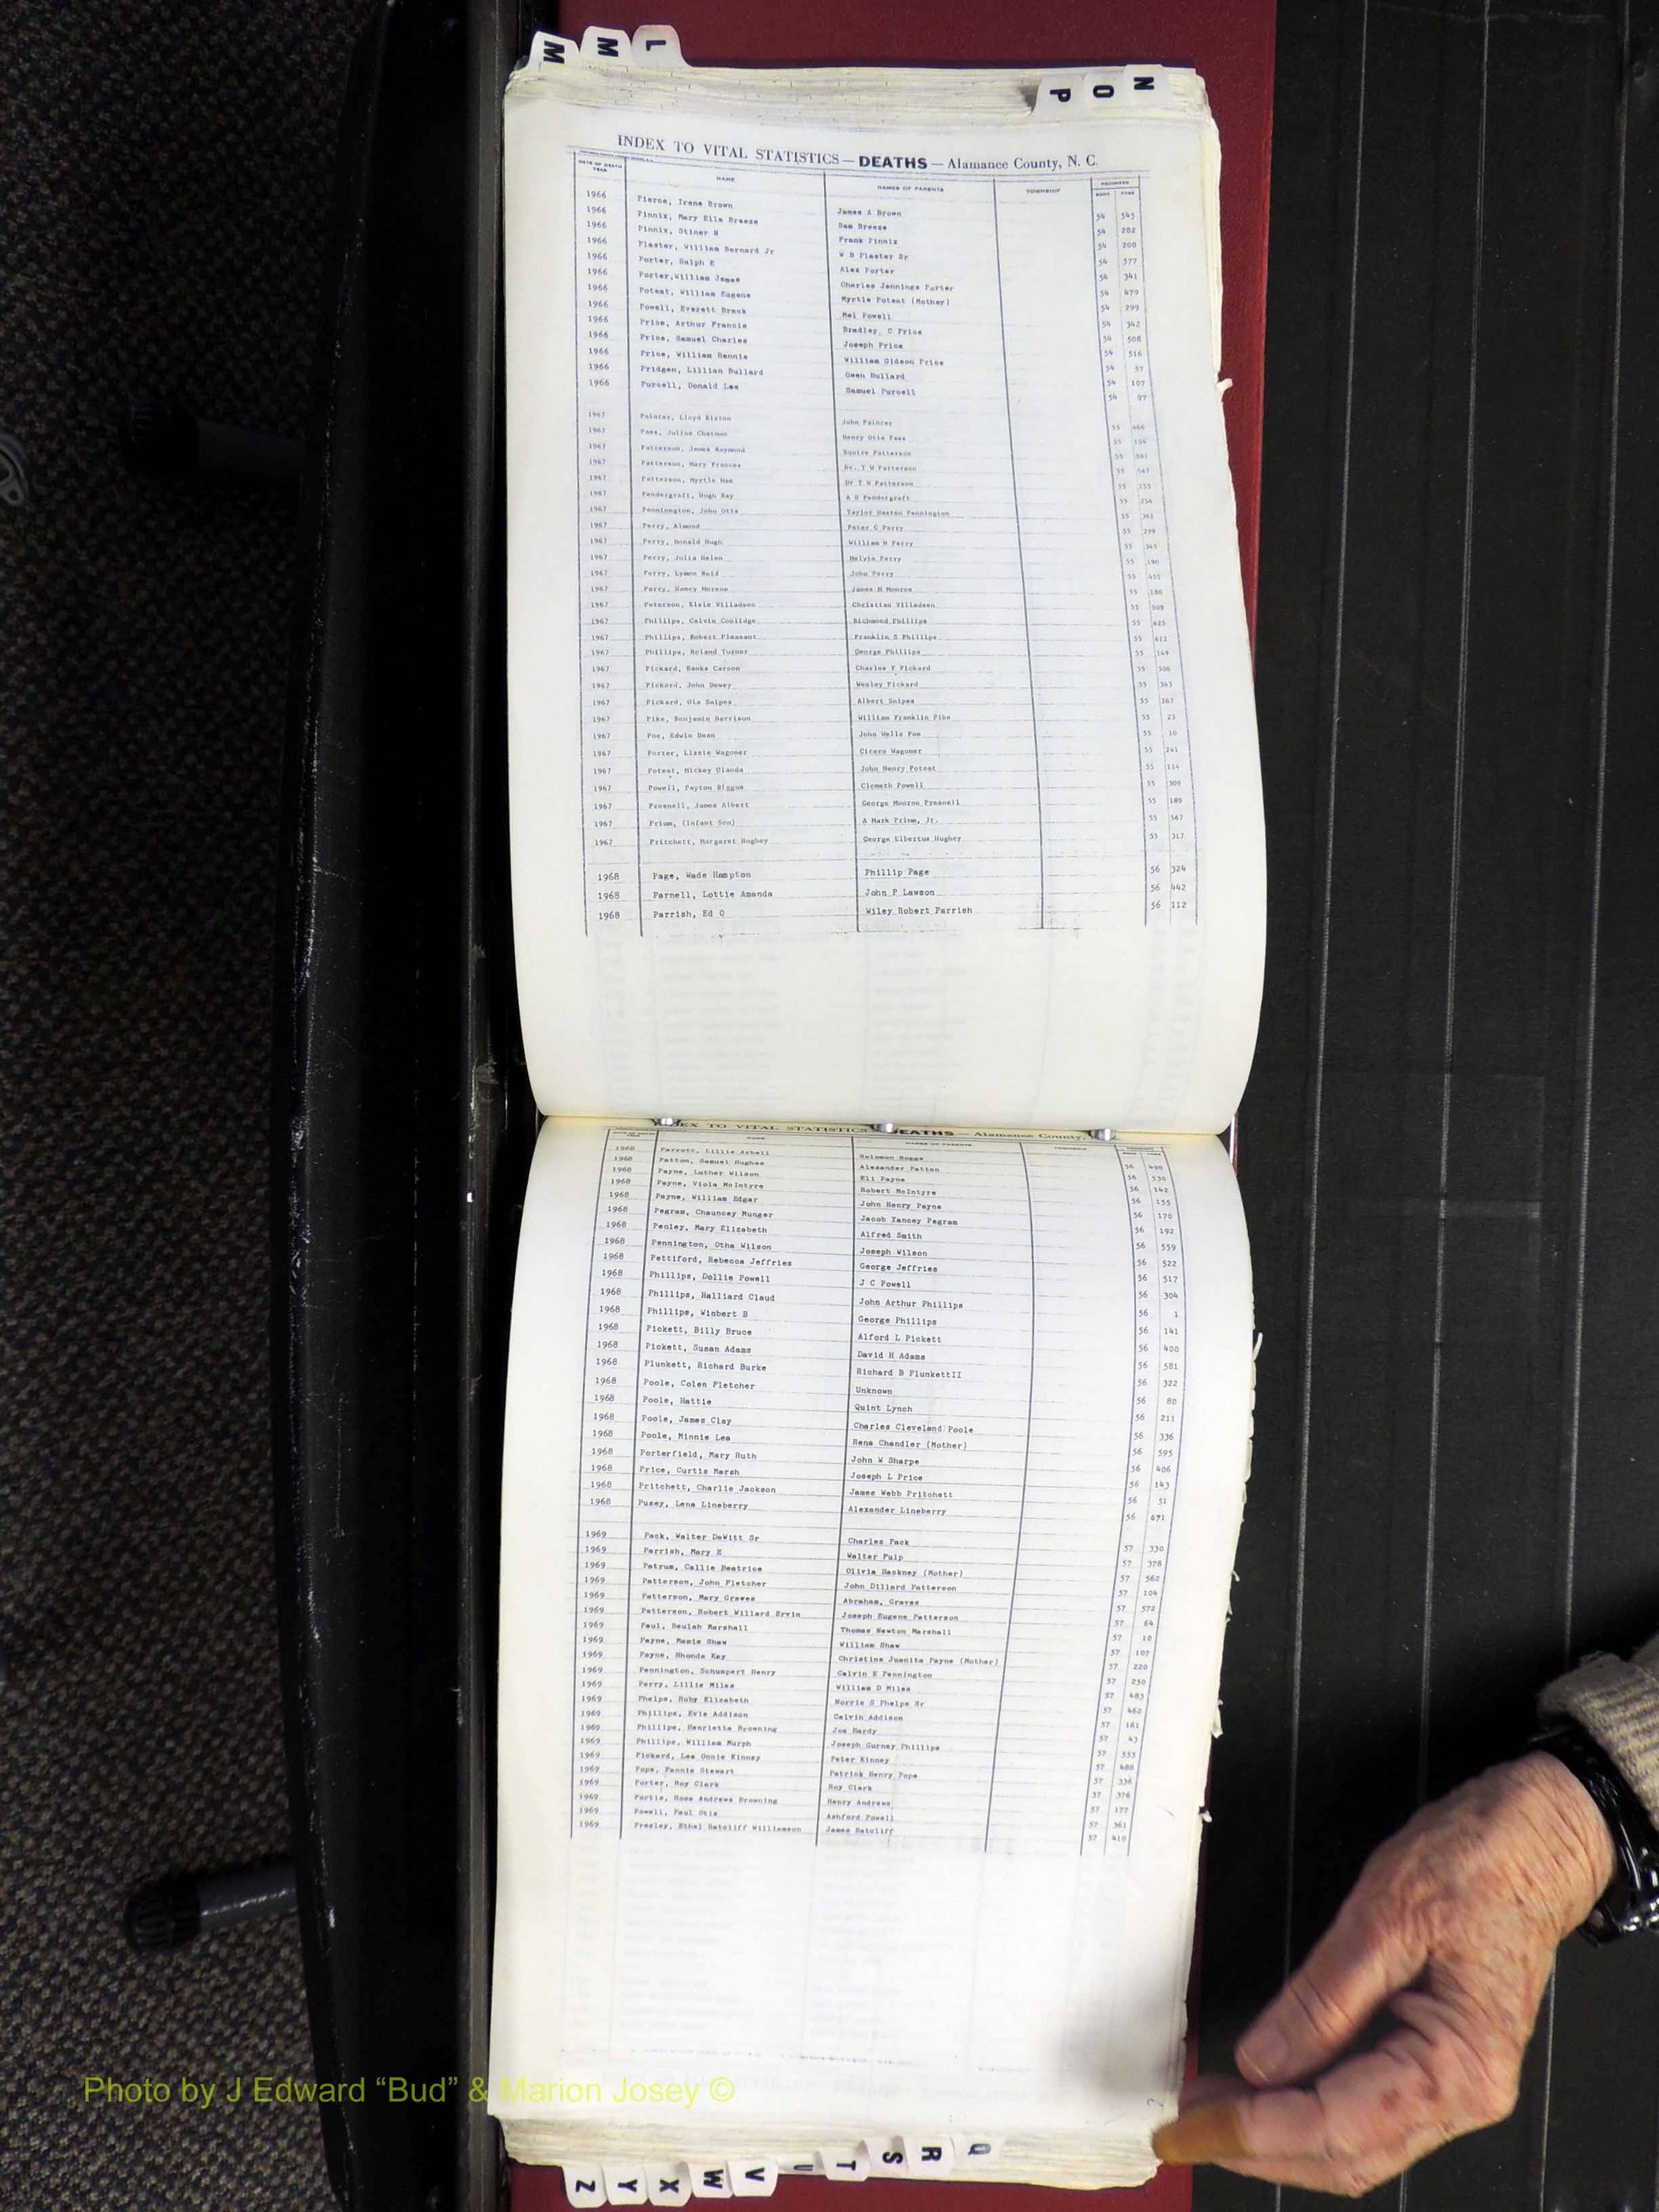 M M L
P O N
INDEX TO VITAL STATISTICS — DEATHS — Alamance County, N. C.
DATE OF DEATH YEAR NAME NAMES OF PARENTS TOWNSHIP RECORDED BOOK PAGE
1966 Pierce, Irene Brown James A Brown 54 545
1966 Pinnix, Mary Ella Breeze Sam Breeze 54 282
1966 Pinnix, Stiner N Frank Pinnix 54 208
1966 Plaster, William Bernard Jr W B Plaster Sr 54 577
1966 Porter, Ralph E Alex Porter 54 341
1966 Porter,William James Charles Jennings Porter 54 479
1966 Poteat, William Eugene Myrtle Poteat (Mother) 54 299
1966 Powell, Everett Brank Mel Powell 54 342
1966 Price, Arthur Francis Bradley C Price 54 508
1966 Price, Samuel Charles Joseph Price 54 516
1966 Price, William Rennie William Gideon Price 54 57
1966 Pridgen, Lillian Bullard Owen Bullard 54 107
1966 Purcell, Donald Lee Samuel Purcell 54 97
1967 Painter, Lloyd Elston John Painter 55 466
1967 Pass, Julius Chatman Henry Otis Pass 55 154
1967 Patterson, James Raymond Squire Patterson 55
1967 Patterson, Mary Frances Dr. T W Patterson 55 547
1967 Patterson, Myrtle Mae Dr T W Patterson 55
1967 Pendergraft, Hugh Ray A D Pendergraft 55
1967 Pennington, John Otis Taylor Haston Pennington 55 361
1967 Perry, Almond Peter C Perry 55 299
1967 Perry, Donald Hugh William H Perry 55 345
1967 Perry, Julia Helen Melvin Perry 55 190
1967 Perry, Lymon Reid John Perry 55 455
1967 Perry, Nancy Morene James M Monroe 55 180
1967 Peterson, Elsie Villadsen Christian Villadsen 55 509
1967 Phillips, Calvin Coolidge Richmond Phillips 55 625
1967 Phillips, Robert Pleasant Franklin S Phillips 55 612
1967 Phillips, Roland Turner George Phillips 55 149
1967 Pickard, Banks Carson Charles F Pickard 55 506
1967 Pickard, John Dewey Wesley Pickard 55 343
1967 Pickard, Ola Snipes Albert Snipes 55 267
1967 Pike, Benjamin Harrison William Franklin Pike 55 23
1967 Poe, Edwin Dean John Wells Poe 55 10
1967 Porter, Lizzie Wagoner Cicero Wagoner 55 241
1967 Poteat, Mickey Olanda John Henry Poteat 55 114
1967 Powell, Payton Biggue Clemeth Powell 55 309
1967 Presnell, James Albert George Monroe Presnell 55 189
1967 Prium, (Infant Son) A Mark Prium, Jr. 55 567
1967 Pritchett, Margaret Hughey George Elbertus Hughey 55 317
1968 Page, Wade Hampton Phillip Page 56 324
1968 Parnell, Lottie Amanda John P Lawson 56 442
1968 Parrish, Ed O Wiley Robert Parrish 56 112
INDEX TO VITAL STATISTICS DEATHS — Alamance County,
NAME NAMES OF PARENTS TOWNSHIP
1968 Parrott, Lillie Arbell Solomon Boggs 56 498
1968 Patton, Samuel Hughes Alexander Patton 56 530
1968 Payne, Luther Wilson Eli Payne 56 142
1968 Payne, Viola McIntyre Robert McIntyre 56 155
1968 Payne, William Edgar John Henry Payne 56 170
1968 Pegram, Chauncey Munger Jacob Yancey Pegram 56 192
1968 Penley, Mary Elizabeth Alfred Smith 56 559
1968 Pennington, Otha Wilson Joseph Wilson 56 522
1968 Pettiford, Rebecca Jeffries George Jeffries 56 517
1968 Phillips, Dollie Powell J C Powell 56 304
1968 Phillips, Halliard Claud John Arthur Phillips 56 1
1968 Phillips, Winbert B George Phillips 56 141
1968 Pickett, Billy Bruce Alford L Pickett 56 400
1968 Pickett, Susan Adams David H Adams 56 581
1968 Plunkett, Richard Burke Richard B PlunkettII 56 322
1968 Poole, Colen Fletcher Unknown 56 80
1968 Poole, Hattie Quint Lynch 56 211
1968 Poole, James Clay Charles Cleveland Poole 56 336
1968 Poole, Minnie Lea Rena Chandler (Mother) 56 595
1968 Porterfield, Mary Ruth John W Sharpe 56 406
1968 Price, Curtis Marsh Joseph L Price 56 143
1968 Pritchett, Charlie Jackson James Webb Pritchett 56 51
1968 Pusey, Lena Lineberry Alexander Lineberry 56 471
1969 Pack, Walter DeWitt Sr Charles Pack 57 330
1969 Parrish, Mary E Walter Fulp 57 378
1969 Patrum, Callie Beatrice Olivia Hackney (Mother) 57 562
1969 Patterson, John Fletcher John Dillard Patterson 57 104
1969 Patterson, Mary Graves Abraham, Graves 57 572
1969 Patterson, Robert Willard Ervin Joseph Eugene Patterson 57 64
1969 Paul, Beulah Marshall Thomas Newton Marshall 57 18
1969 Payne, Mamie Shaw William Shaw 57 107
1969 Payne, Rhonda Kay Christine Juanita Payne (Mother) 57 220
1969 Pennington, Schumpert Henry Calvin E Pennington 57 250
1969 Perry, Lillie Miles William D Miles 57 483
1969 Phelps, Ruby Elizabeth Norris S Phelps Sr 57 462
1969 Phillips, Evie Addison Calvin Addison 57 161
1969 Phillips, Henrietta Browning Joe Hardy 57 43
1969 Phillips, William Murph Joseph Gurney Phillips 57 555
1969 Pickard, Lee Onnie Kinney Peter Kinney 57 488
1969 Pope, Fannie Stewart Patrick Henry Pope 57 336
1969 Porter, Roy Clark Roy Clark 57 376
1969 Portis, Rosa Andrews Browning Henry Andrews 57 177
1969 Powell, Paul Otis Ashford Powell 57 361
1969 Presley, Ethel Ratcliff Williamson James Ratcliff 57 418
Photo by J Edward “Bud” & Marion Josey ©
Z Y X W V U T S R Q